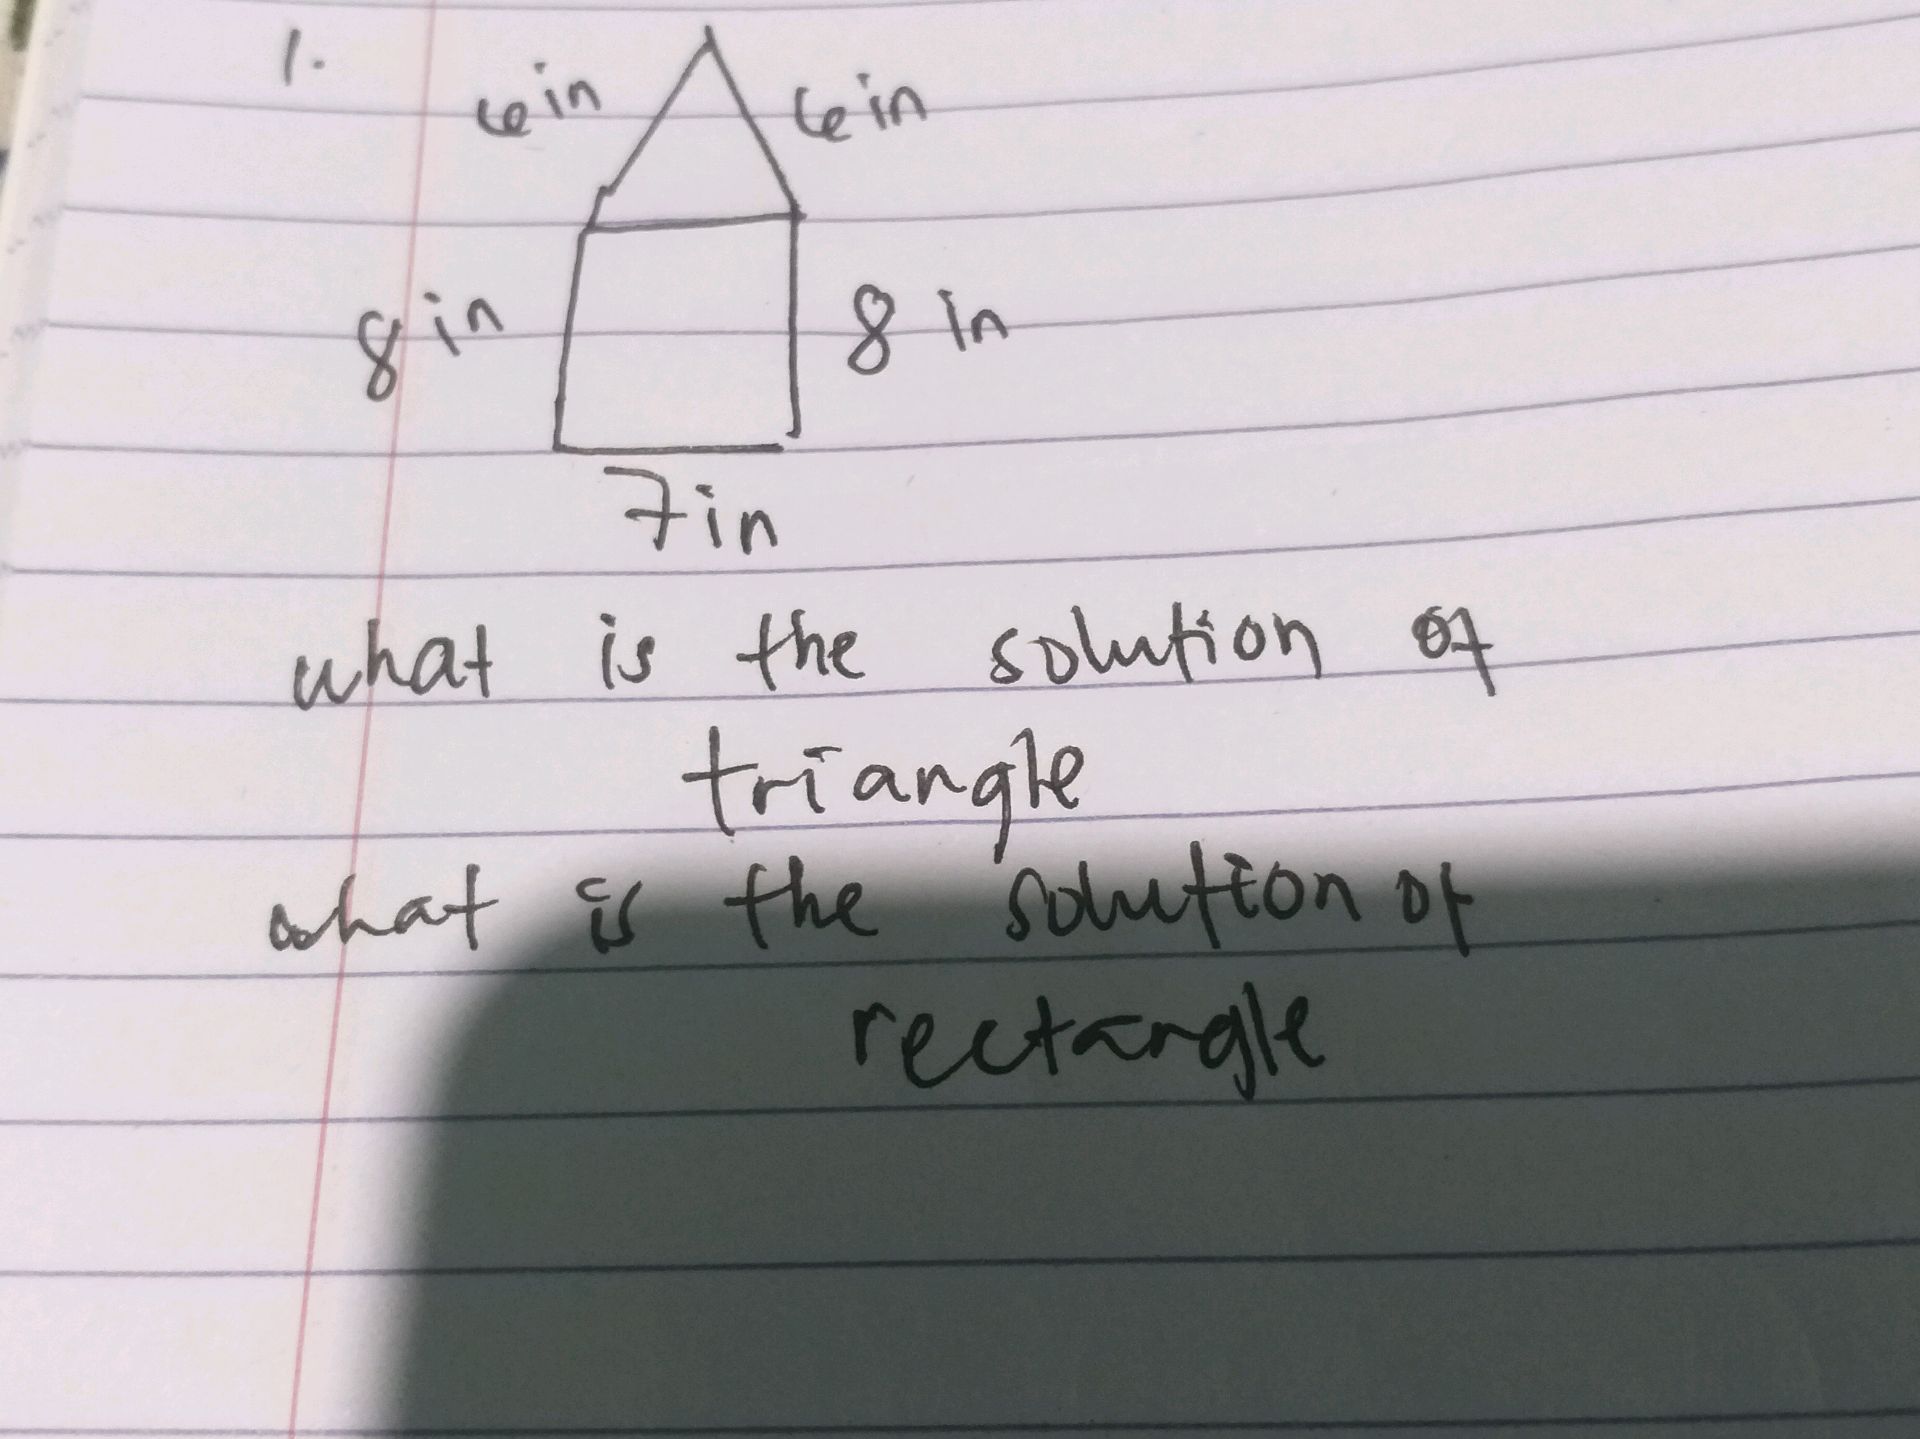 1.
6in 6in
8in 8 in
7in
what is the solution of
triangle
what is the solution of
rectangle